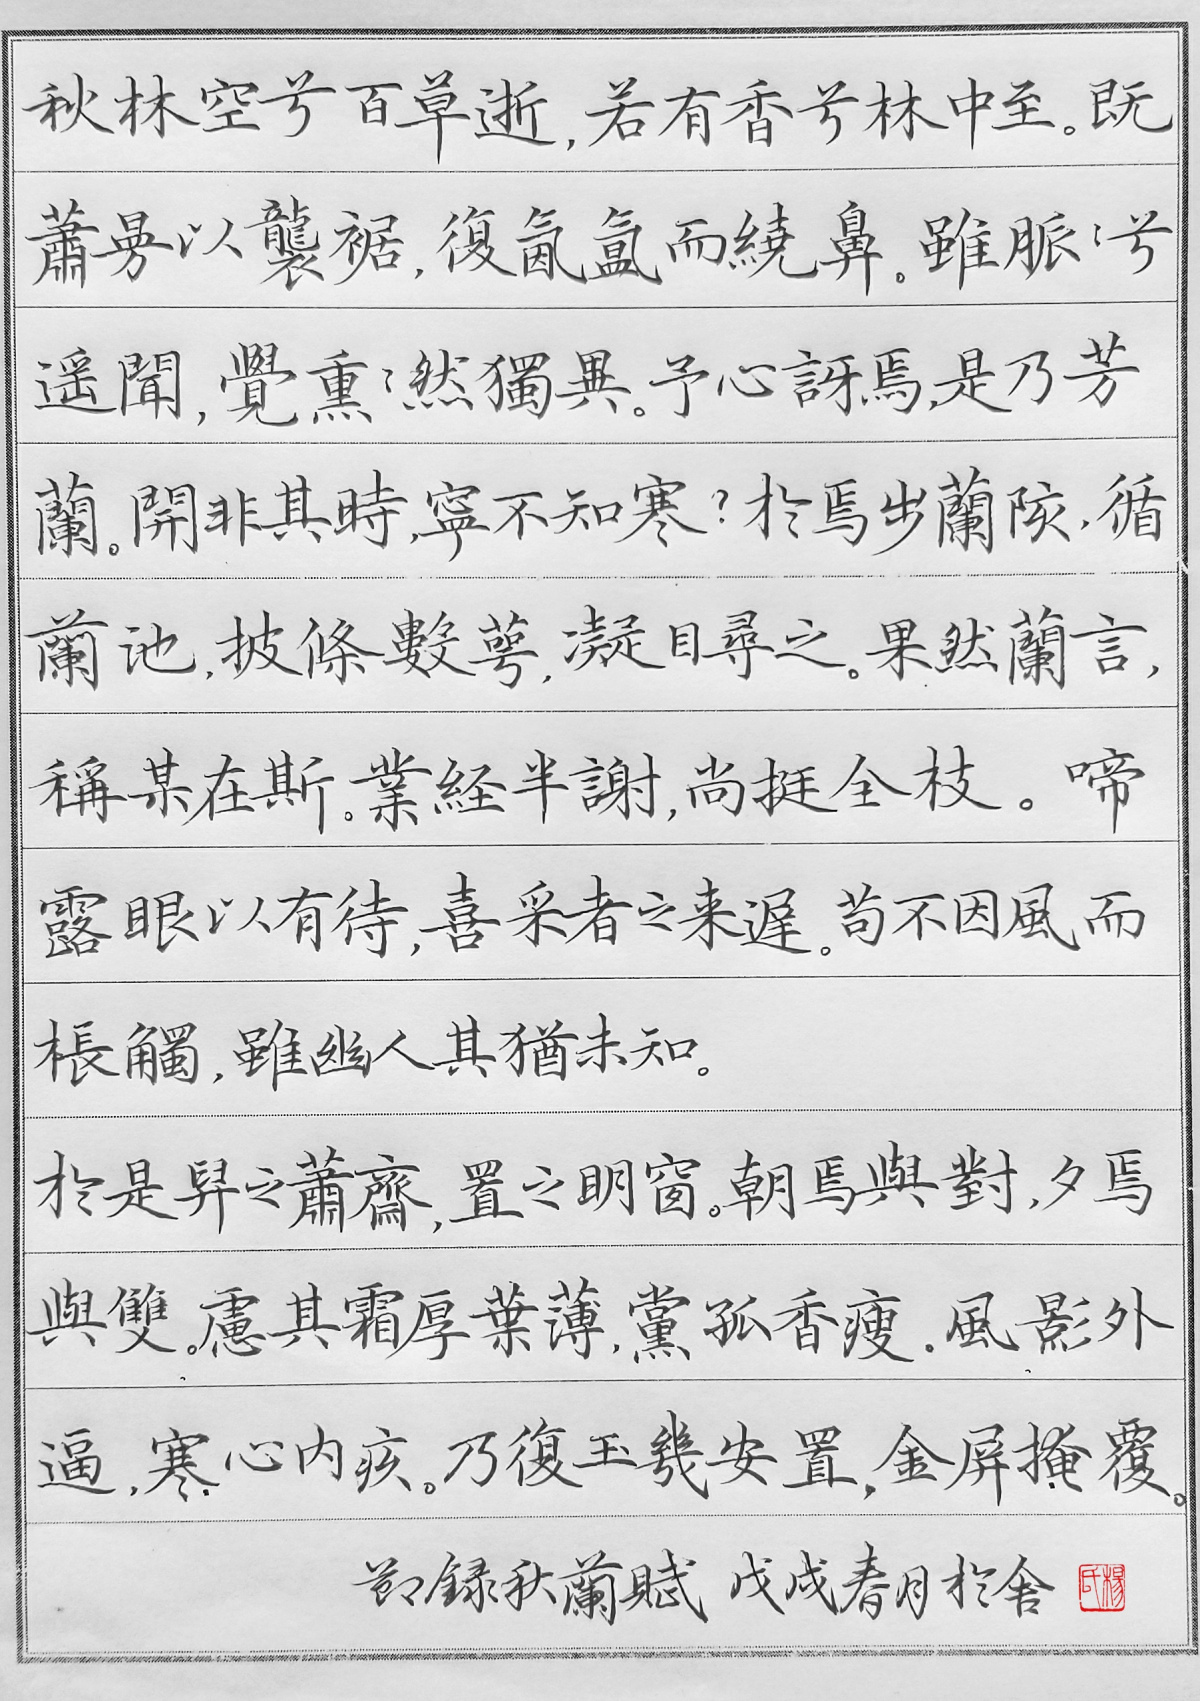 秋林空兮百草逝，若有香兮林中至。既
蕭曼以襲裾，復氤氳而繞鼻。雖脈〻兮
遥聞，覺熏〻然獨異。予心訝焉，是乃芳
蘭。開非其時，寧不知寒？於焉出蘭陔，循
蘭池，披條數萼，凝目尋之。果然蘭言，
稱某在斯。業経半謝，尚挺全枝。啼
露眼以有待，喜采者之来遲。苟不因風而
棖觸，雖幽人其猶未知。
於是舁之蕭齋，置之明窗。朝焉與對，夕焉
與雙。慮其霜厚葉薄，黨孤香瘦。風影外
逼，寒心内疚。乃復玉幾安置，金屏掩覆。
節録秋蘭賦 戊戌春月於舍
楊氏